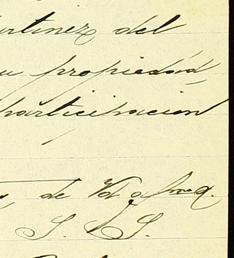 artinez del
u propiedad,
participacion
, de Vd afmo.
S. S.